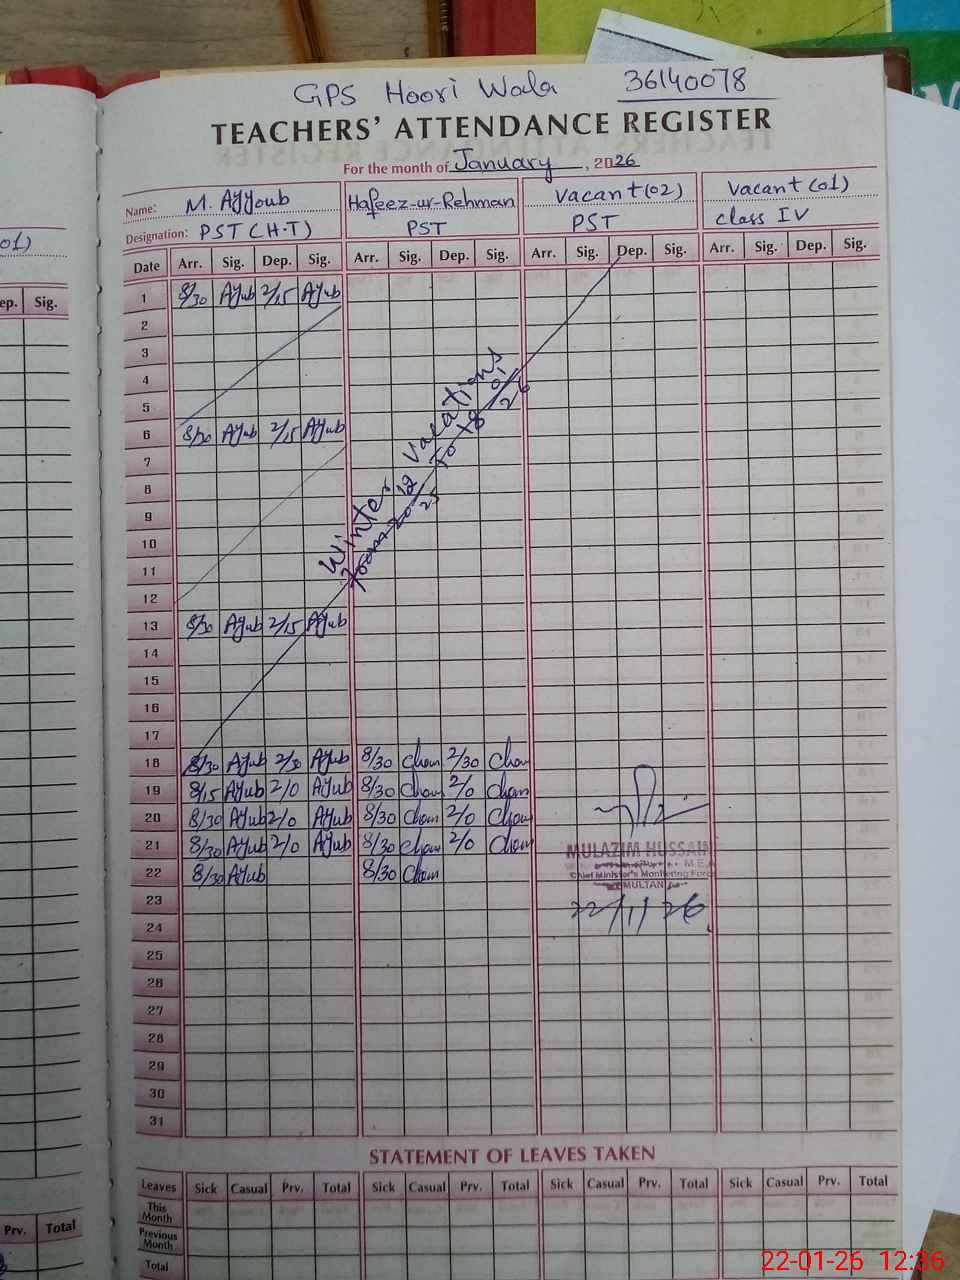 GPS Hoori Wala 36140078
TEACHERS' ATTENDANCE REGISTER
For the month of January, 2026
Name: M. Ayyoub Hafeez-ur-Rehman Vacant (02) Vacant (01)
Designation: PST (H.T) PST PST class IV
Date Arr. Sig. Dep. Sig. Arr. Sig. Dep. Sig. Arr. Sig. Dep. Sig. Arr. Sig. Dep. Sig.
1 8/30 Ayub 2/15 Ayub
2
3
4
5
6 8/30 Ayub 2/15 Ayub
7
8
9
10
11
12
Winter Vacations
from 20 12/25 To 18 01/26
13 8/30 Ayub 2/15 Ayub
14
15
16
17
18 8/30 Ayub 2/30 Ayub 8/30 2/30
19 8/15 Ayub 2/0 Ayub 8/30 2/0
20 8/30 Ayub 2/0 Ayub 8/30 2/0
21 8/30 Ayub 2/0 Ayub 8/30 2/0
22 8/30 Ayub 8/30
MULAZIM HUSSAIN
M.E.A
Chief Minister's Monitoring Force
MULTAN
22/1/26
23
24
25
26
27
28
29
30
31
STATEMENT OF LEAVES TAKEN
Leaves Sick Casual Prv. Total Sick Casual Prv. Total Sick Casual Prv. Total Sick Casual Prv. Total
This Month
Previous Month
Total
01)
ep. Sig.
Prv. Total
22-01-26 12:36